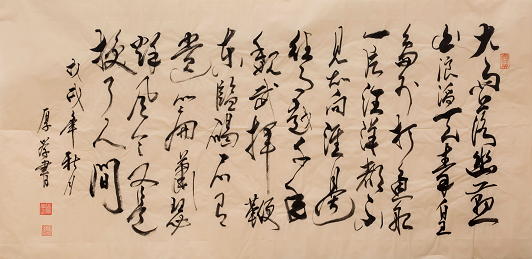 大雨落幽燕
白浪滔天秦皇
島外打魚船
一片汪洋都不
見知向誰邊
往事越千年
魏武揮鞭
東臨碣石有
遺篇蕭瑟
秋風今又是
換了人間
戊戌年秋月
厚学書